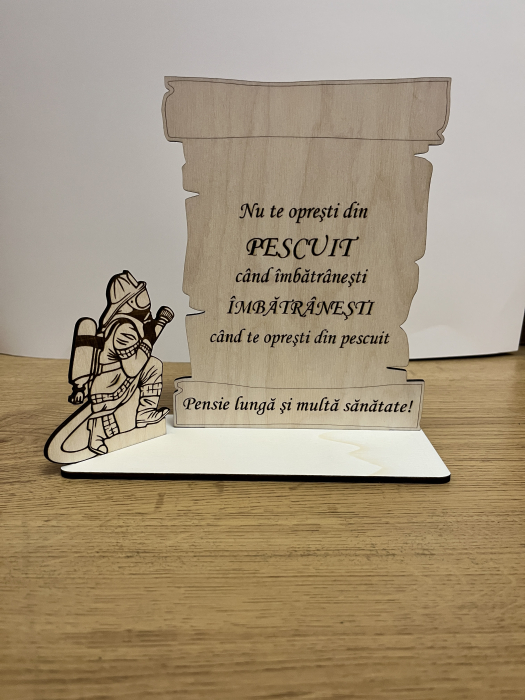 Nu te oprești din
PESCUIT
când îmbătrânești
ÎMBĂTRÂNEȘTI
când te oprești din pescuit
Pensie lungă și multă sănătate!